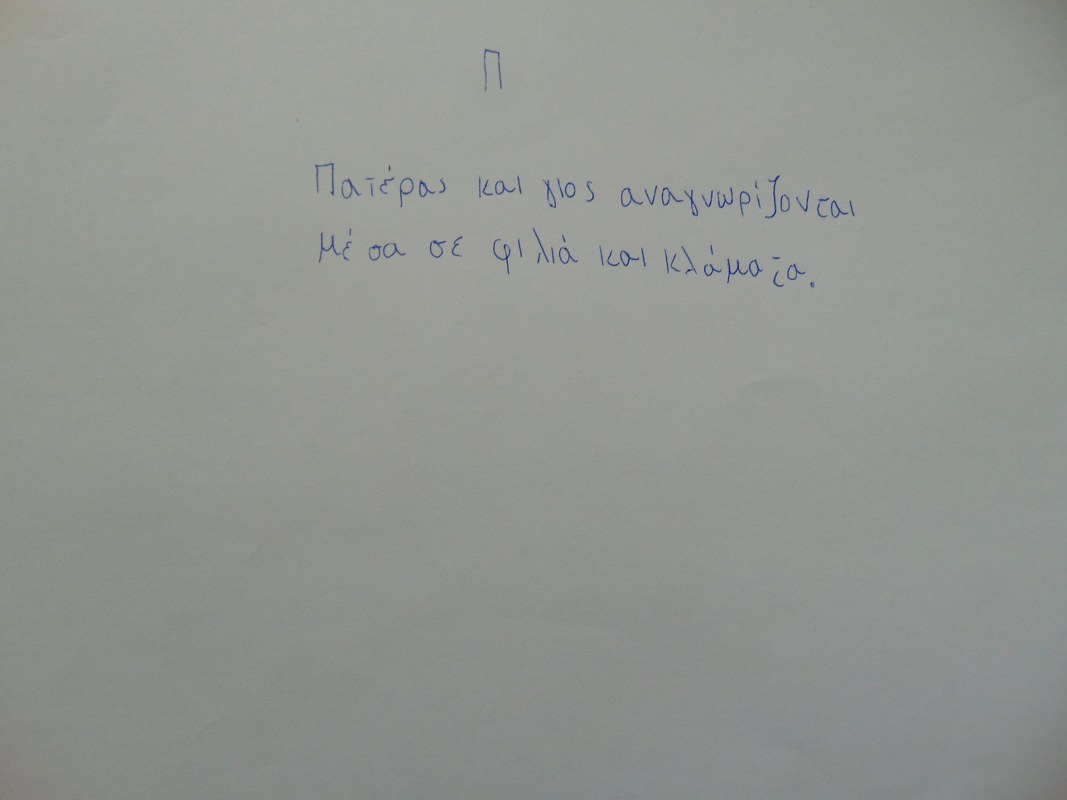 Π
Πατέρας και γιος αναγνωρίζονται
μέσα σε φιλιά και κλάματα.